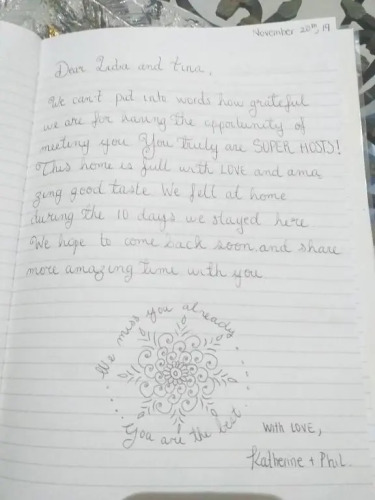 November 20th, 19
Dear Lidia and Tina,
We can't put into words how grateful
we are for having the opportunity of
meeting you You truly are SUPER HOSTS!
This home is full with LOVE and ama
zing good taste We fell at home
during the 10 days we stayed here
We hope to come back soon and share
more amazing time with you
We miss you already
You are the best
With LOVE,
Katherine + Phil